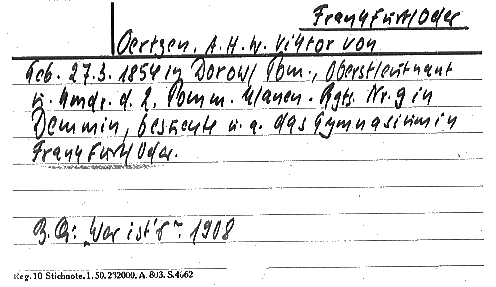 Frankfurt/Oder
Oertzen, A. H. W. Viktor von
Geb. 27.3. 1854 in Dorow/Pom., Oberstleutnant
u. Kmdr. d. 2. Pomm. Ulanen-Rgts. Nr. 9 in
Demmin, besuchte u. a. das Gymnasium in
Frankfurt/Oder.
B.Q: "Wer ist's" 1908
Reg. 10 Stichnote. 1. 50. 232000. A. 803. S. 4662